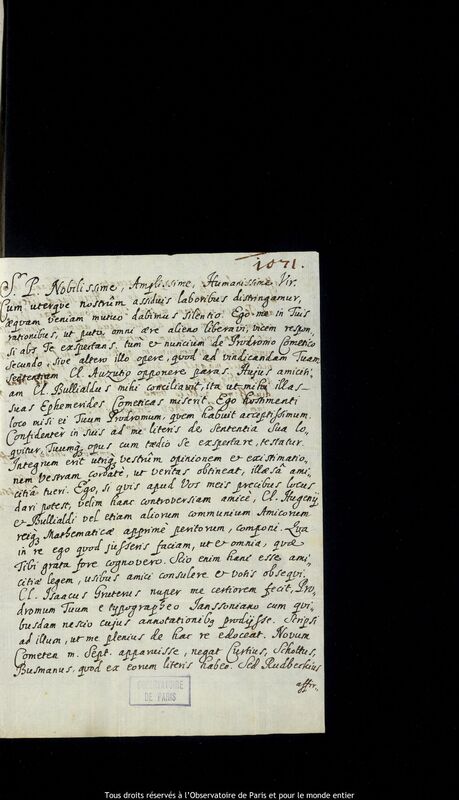 1071.
S. P. Nobilissime, Amplissime, Humanissime Vir.
Cum uterque nostrûm assiduis laboribus distringamur,
æquam veniam mutuo dabimus silentio. Ego me in Tuis
rationibus, ut puto, omni ære alieno liberavi, vicem respon,
si abs Te exspectans, tum et nuncium de Prodromo Cometico
secundo, sive altero illo opere, quod ad vindicandam Tuam
sententiam Cl. Auzutio opponere paras. Hujus amiciti,
am Cl. Bullialdus mihi conciliavit, ita ut mihi illas
suas Ephemerides Cometicas miserit. Ego hostimenti
loco misi ei Tuum Prodromum, quem habuit acceptissimum.
Confidenter in suis ad me literis de sententia sua lo,
quitur, Tuumq3 opus cum tædio se exspectare, testatur.
Integrum erit utriq3 vestrûm opinionem et existimatio,
nem vestram cordatè, ut veritas obtineat, illæsâ ami,
citiâ tueri. Ego, si quis apud Vos meis precibus locus
dari potest, velim hanc controversiam amicè, Cl. Hugenij
et Bullialdi vel etiam aliorum communium Amicorum
reiq3 Mathematicæ apprimè peritorum, componi. Qua
in re ego quod jusseris faciam, ut et omnia, quæ
Tibi grata fore cognovero. Scio enim hanc esse ami,
citiæ legem, usibus amici consulere et votis obsequi.
Cl. Isaacus Gruterus nuper me certiorem fecit, Pro,
dromum Tuum e typographeo Janssoniano cum qui,
busdam nescio cujus annotationibus prodijsse. Scripsi
ad illum, ut me plenius de hac re edoceat. Novum
Cometen m. Sept. apparuisse, negat Curtius, Schottus,
Busmanus, quod ex eorum literis habeo. Sed Rudbeckius
affir,
OBSERVATOIRE
DE PARIS
Tous droits réservés à l'Observatoire de Paris et pour le monde entier